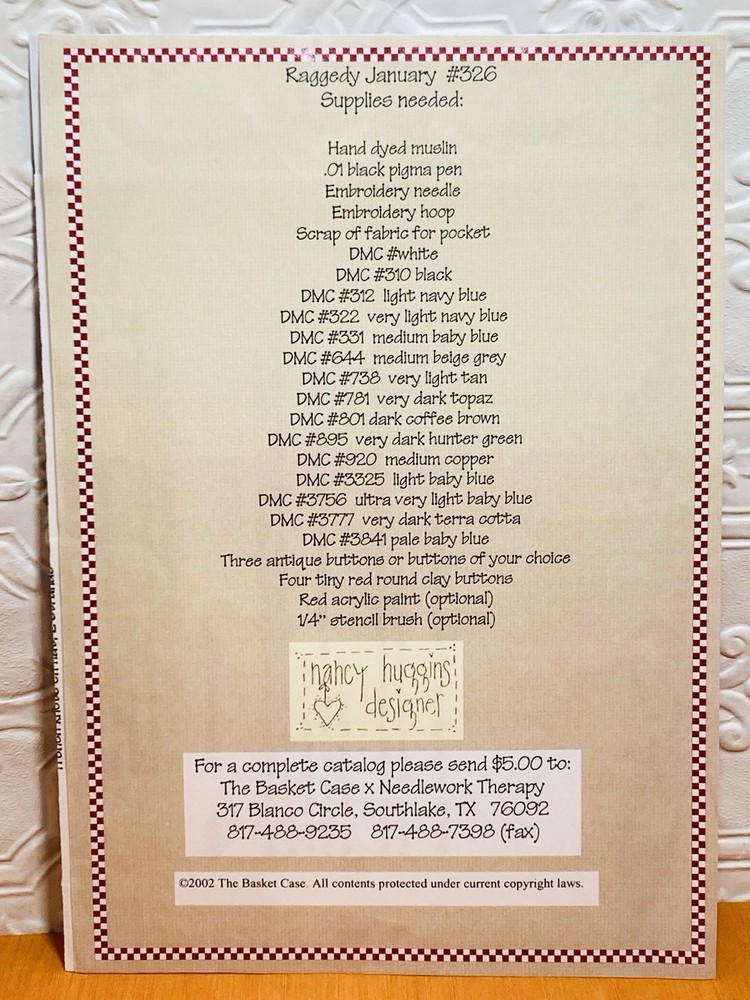 Raggedy January #326
Supplies needed:
Hand dyed muslin
.01 black pigma pen
Embroidery needle
Embroidery hoop
Scrap of fabric for pocket
DMC #white
DMC #310 black
DMC #312 light navy blue
DMC #322 very light navy blue
DMC #331 medium baby blue
DMC #644 medium beige grey
DMC #738 very light tan
DMC #781 very dark topaz
DMC #801 dark coffee brown
DMC #895 very dark hunter green
DMC #920 medium copper
DMC #3325 light baby blue
DMC #3756 ultra very light baby blue
DMC #3777 very dark terra cotta
DMC #3841 pale baby blue
Three antique buttons or buttons of your choice
Four tiny red round clay buttons
Red acrylic paint (optional)
1/4" stencil brush (optional)
nancy huggins
designer
For a complete catalog please send $5.00 to:
The Basket Case x Needlework Therapy
317 Blanco Circle, Southlake, TX 76092
817-488-9235 817-488-7398 (fax)
©2002 The Basket Case. All contents protected under current copyright laws.